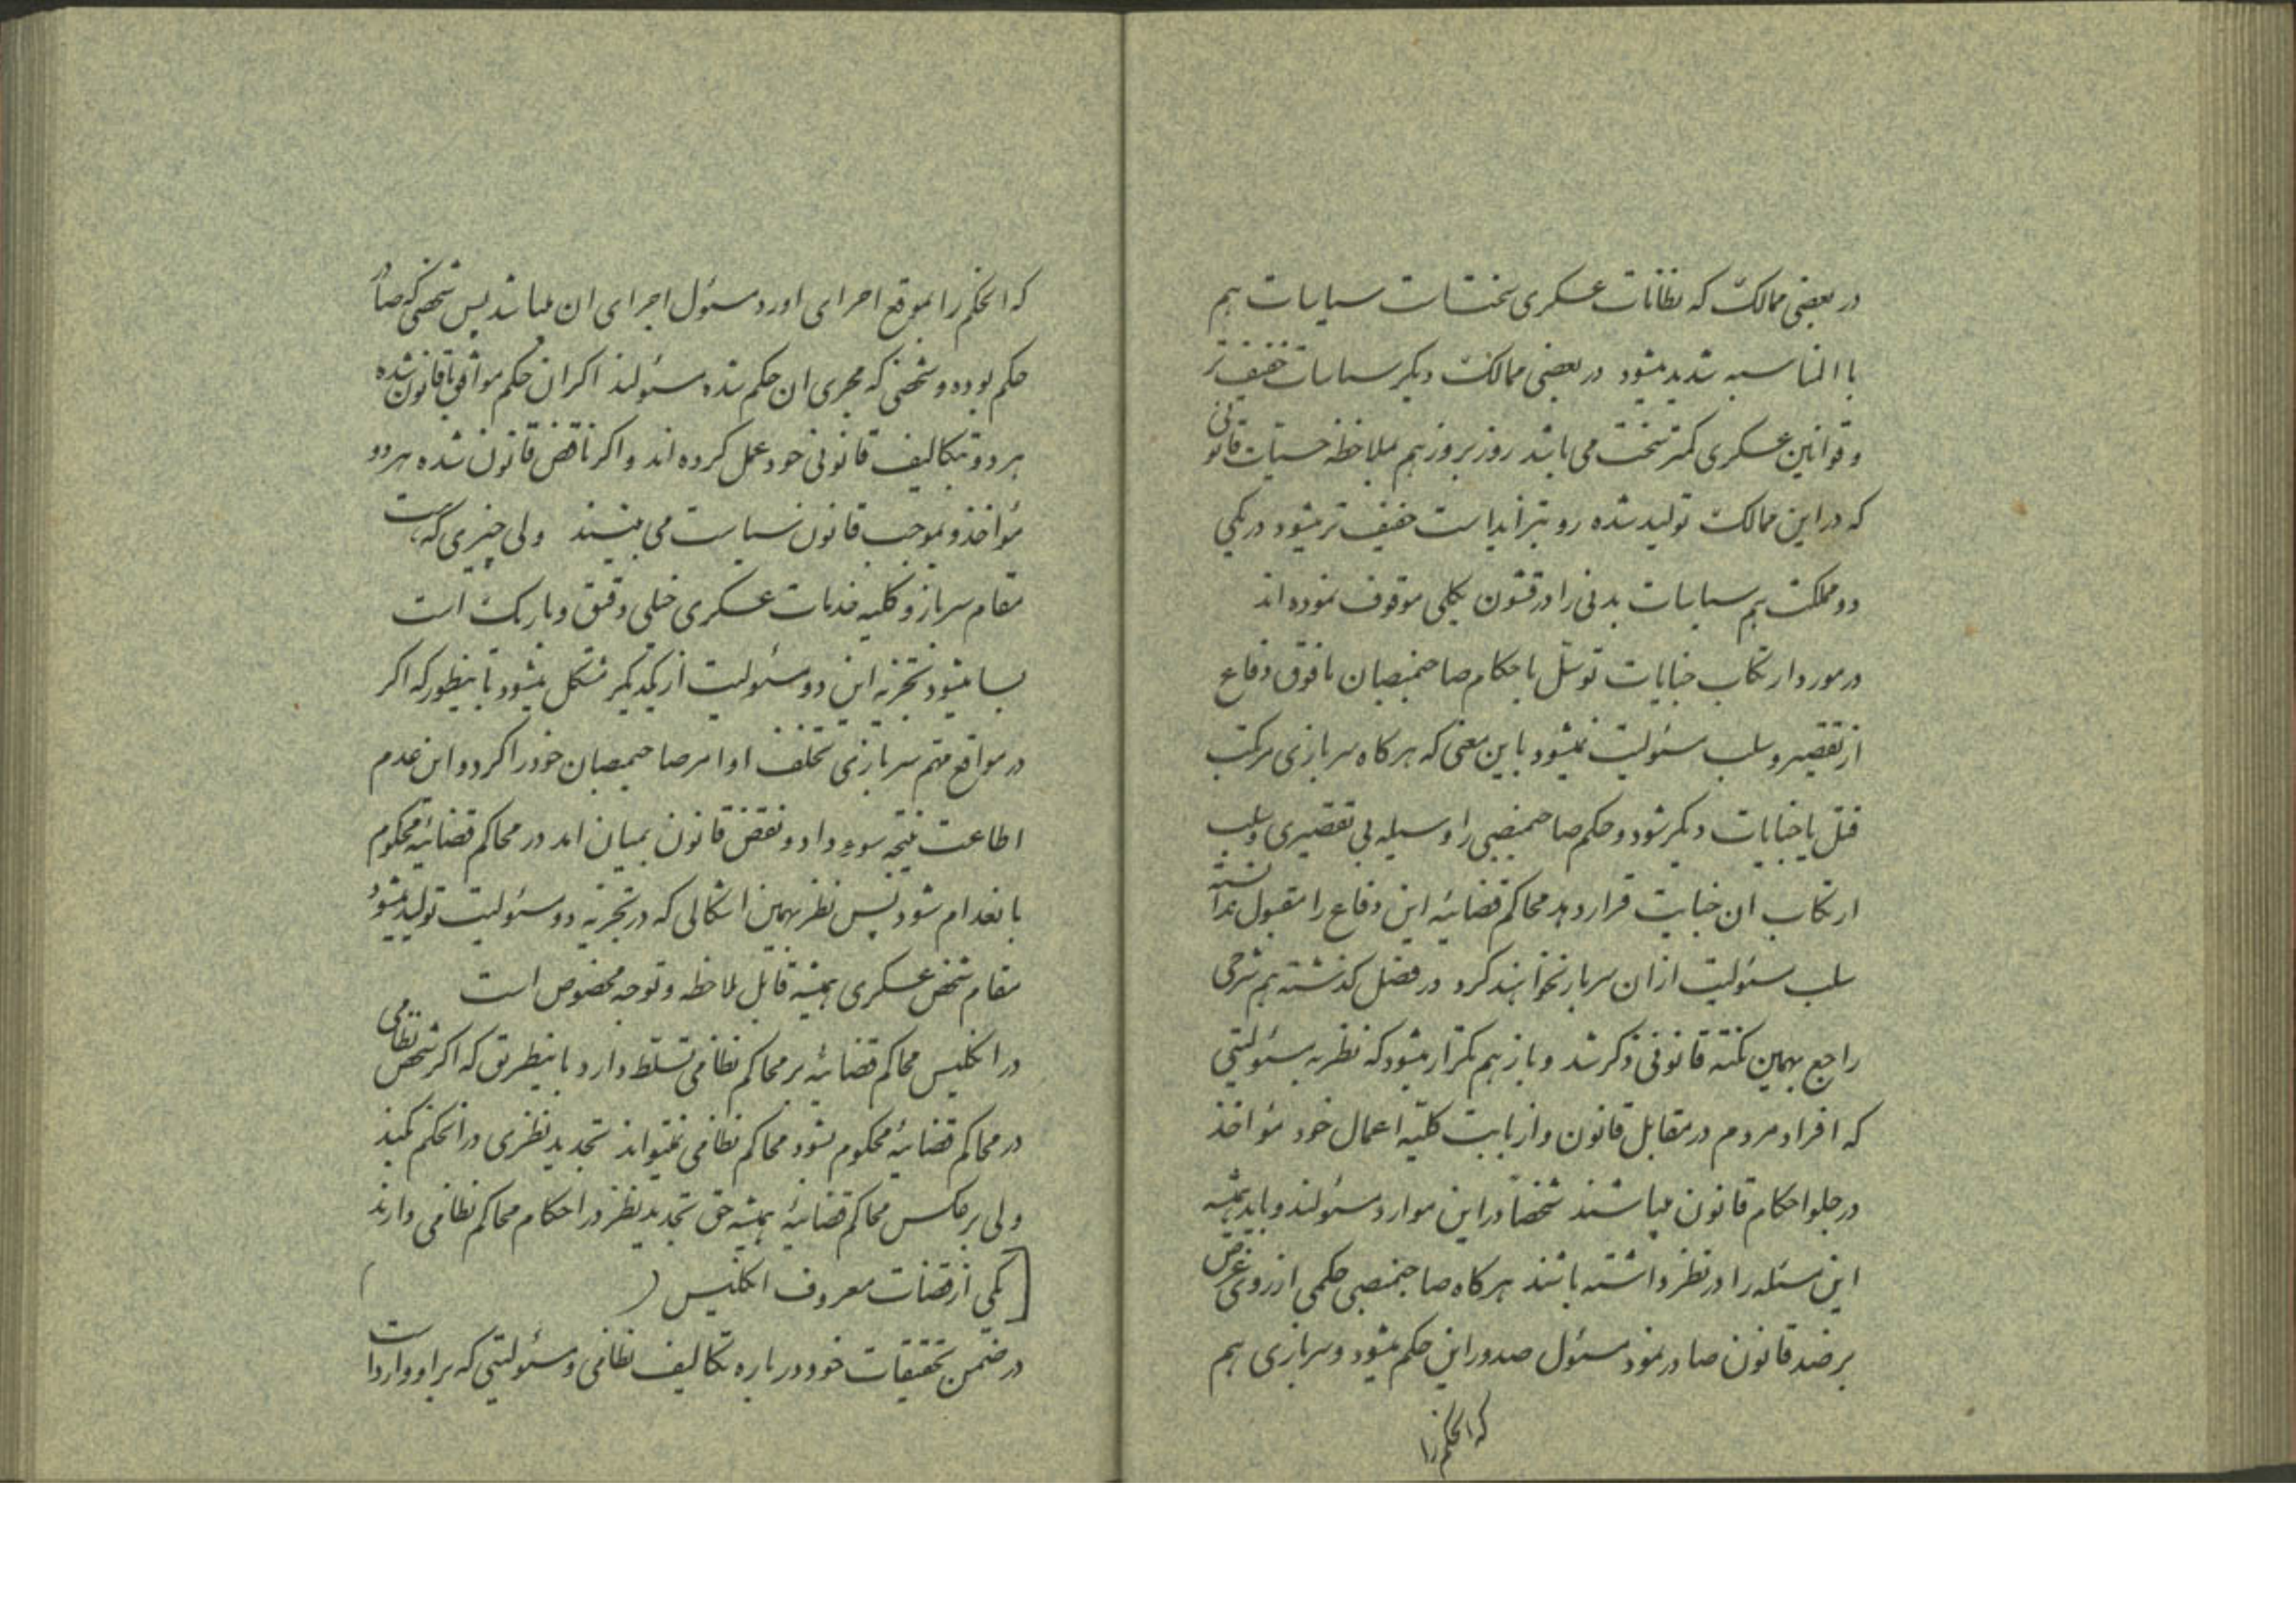 در بعضی ممالک که نظامات عسکری سخت است سیاسات هم
با المناسبه شدید میشود در بعضی ممالک دیگر سیاسات خفیف تر
و قوانین عسکری کمتر سخت می باشد روز بروز هم بملاحظه حسیات قانونی
که در این ممالک تولید شده رو بتزاید است خفیف تر میشود در یکی
دو مملکت هم سیاسات بدنی را در قشون بکلی موقوف نموده اند
در مورد ارتکاب جنایات توسل باحکام صاحبمنصبان مافوق دفاع
از تقصیر و سلب مسئولیت نمیشود باین معنی که هرکاه سربازی مرتکب
قتل یا جنایات دیگر شود و حکم صاحبمنصبی را وسیله بی تقصیری و سلب
ارتکاب ان جنایت قرار دهد محاکم قضائیه این دفاع را مقبول ندانسته
سلب مسئولیت از ان سرباز نخواهند کرد در فصل کذشته هم شرحی
راجع بهمین نکته قانونی ذکر شد و باز هم تکرار میشود که نظر به مسئولیتی
که افراد مردم در مقابل قانون و از بابت کلیه اعمال خود مؤاخذ
در جلو احکام قانون میباشند شخصاً در این موارد مسئولند و باید همیشه
این مسئله را در نظر داشته باشند هرکاه صاحبمنصبی حکمی از روی غرض
بر ضد قانون صادر نمود مسئول صدور این حکم میشود و سربازی هم
که انحکم را
که انحکم را بموقع اجرای اورد مسئول اجرای ان میباشد پس شخصی که صادر
حکم بوده و شخصی که مجری ان حکم شده مسئولند اکر ان حکم موافق با قانون شده
هر دو بتکالیف قانونی خود عمل کرده اند و اکر ناقض قانون شده هر دو
مؤاخذ و بموجب قانون سیاست می بینند ولی چیزی که هست
مقام سرباز و کلیه خدمات عسکری خیلی دقیق و باریک است
بسا میشود تجزیه این دو مسئولیت از یکدیکر مشکل میشود باینطور که اکر
در مواقع مهم سربازی تخلف اوامر صاحبمنصبان خود را کرد و این عدم
اطاعت نتیجه سوء داد و نقض قانون بمیان امد در محاکم قضائیه محکوم
باعدام شود پس نظر بهمین اشکالی که در تجزیه دو مسئولیت تولید میشود
مقام شخص عسکری همیشه قابل ملاحظه و توجه مخصوص است
در انکلیس محاکم قضائیه بر محاکم نظامی تسلط دارد باینطریق که اکر شخص نظامی
در محاکم قضائیه محکوم بشود محاکم نظامی نمیتواند تجدید نظری در انحکم بکند
ولی برعکس محاکم قضائیه همیشه حق تجدید نظر در احکام محاکم نظامی دارند
[یکی از قضات معروف انکلیس ( )
در ضمن تحقیقات خود در باره تکالیف نظامی و مسئولیتی که بر او وارد است